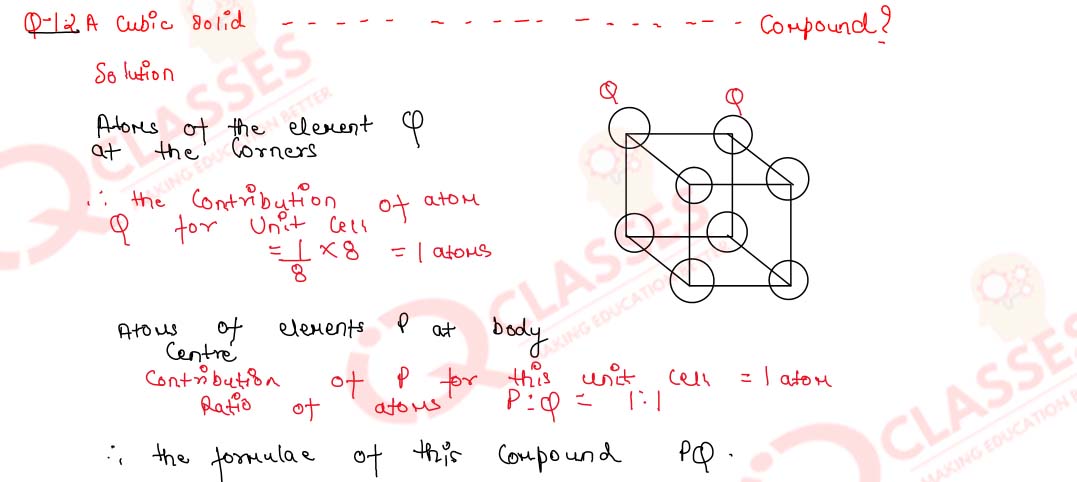 Q-12. A Cubic Solid ------------- Compound?
Solution
Q Q
Atoms of the element Q
at the Corners
∴ the Contribution of atom
Q for Unit Cell
= 1/8 × 8 = 1 atoms
Atoms of elements P at body
Centre
Contribution of P for this unit cell = 1 atom
Ratio of atoms P:Q = 1:1
∴ the formulae of this Compound PQ.
IQ CLASSES
MAKING EDUCATION BETTER
IQ CLASSES
MAKING EDUCATION BETTER
CLASSES
MAKING EDUCATION B